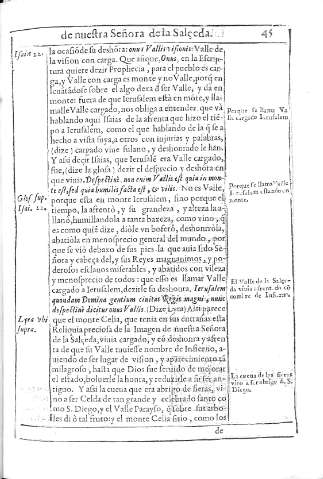 de nuestra Señora de la Salçeda.
45
Isaiæ 22.
la ocasió de su deshóra: onus Vallis visionis: Valle de
la vision con carga. Que aũque, Onus, en la Escrip-
tura quiere dezir Prophecia, para el pueblo es car-
ga, y Valle con carga es monte y no Valle, porq̃ en
leuãtãdose sobre el algo dexa de ser Valle, y da en
monte: fuera de que Ierusalem està en mõte, y lla-
malle Valle cargado, nos obliga a entender que và
hablando aqui Isaias de la afrenta que hizo el tiẽ-
po a Ierusalem, como el que hablando de la q̃ se a
hecho a vista suya, a otros con injurias y palabras,
(dize) cargado vine fulano, y deshonròle le han.
Y asi dezir Isaias, que Ierusalẽ era Valle cargado,
fue, (dize la glosa) dezir el desprecio y deshóra en
que viuia. Despectivè. non enim Vallis est quia in mon-
te est sed quia humilis facta est, & vilis. No es Valle,
porque esta en monte Ierusalem, sino porque el
tiempo, la afrentò, y su grandeza, y alteza hu-
llanò, humillandola a tanta baxeza, como vino, q̃
es como quiẽ dize, diòle vn bofetõ, deshonròla,
abatiòla en menosprecio general del mundo, por
que se viò debaxo de sus pies la que auia sido Se-
ñora y cabeça del, y sus Reyes magnanimos, y po-
derosos esclauos miserables, y abatidos con vileza
y menosprecio de todos: que esso es llamar Valle
cargado a Ierusalem, dezirle su deshora. Ierusalem
quondam Domina gentium ciuitas Regis magni, nunc
despectiuè dicitur onus Vallis (Dize Lyra) Asi parece
que el monte Celia, que tenia en sus entrañas esta
Reliquia preciosa de la Imagen de nuestra Señora
de la Salçeda, viuia cargado, y cõ deshonra y afren
ta de que su Valle tuuiesse nombre de Infierno, a-
uiendo de ser lugar de vision, y aparecimiento tã
milagroso, hasta que Dios fue seruido de mejorar
el estado, boluerle la honra, y reduzirle a su ser an-
tiguo. Y asi la cueua que era abrigo de fieras, vi-
no a ser Celda de tan grande y celebrado santo co
mo S. Diego, y el Valle Parayso, q̃ sobre sus arbo-
les diò tal fruto: y el monte Celia sitio, como los
de
Glos. sup.
Isai. 22.
Lyra vbi
supra.
Porque se llama Va
lle cargado Ierusalem
Porque se llama Valle
Ierusalem estando en
monte.
El Valle de la Salçe-
da viuia afrẽtado cõ
nombre de Infierno.
La cueua de las fieras
vino a ser abrigo de S.
Diego.